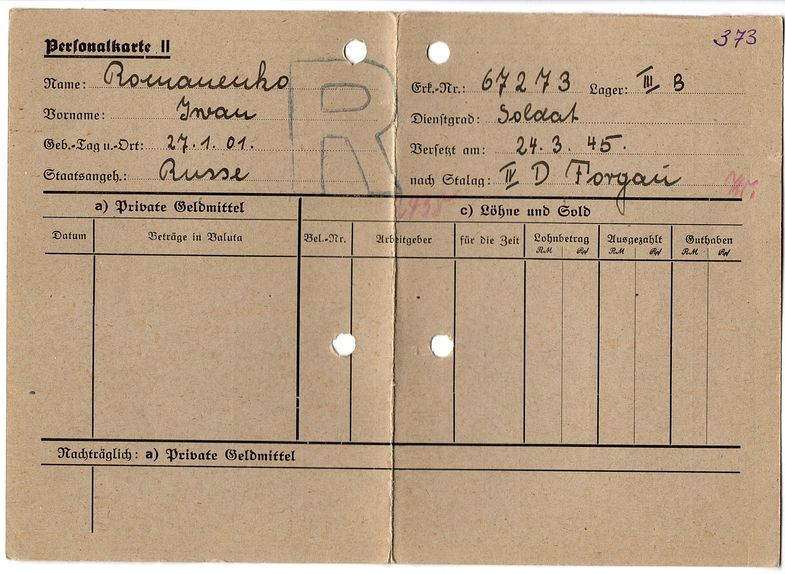 373
Personalkarte II
R
Name: Romanenko
Vorname: Iwan
Geb.-Tag u.-Ort: 27.1.01.
Staatsangeh.: Russe
Erk.-Nr.: 67273 Lager: III B
Dienstgrad: Soldat
Versetzt am: 24.3.45.
nach Stalag: IV D Torgau
a) Private Geldmittel
Datum Beträge in Valuta
c) Löhne und Sold
Bel.-Nr. Arbeitgeber für die Zeit Lohnbetrag Ausgezahlt Guthaben
RM Rpf RM Rpf RM Rpf
Nachträglich: a) Private Geldmittel